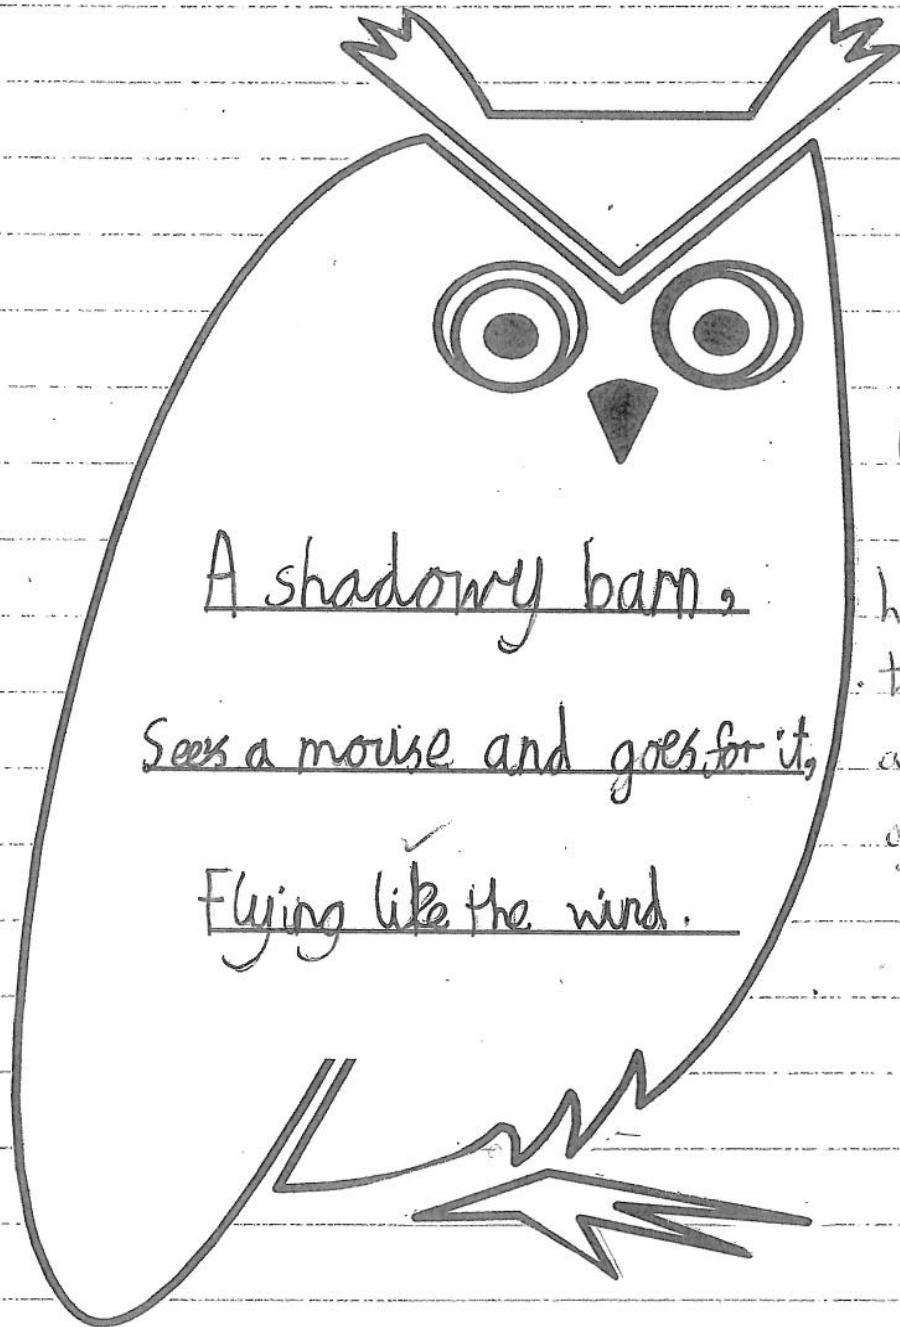 A shadowy barn,
Sees a mouse and goes for it,
Flying like the wind.